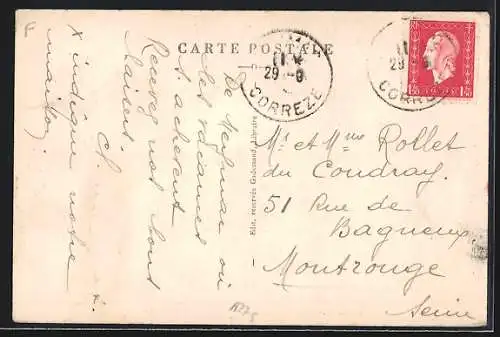 F
CARTE POSTALE
11
29 -9
CORREZE
11
29
CORRE
De Meymac où
les vacances
s'achèvent
Recevez nos bons
baisers.
X indique notre
maison
Edit. réservés
Mr et Mme Rollet
du Coudray
51 Rue de
Bagneux
Montrouge
Seine